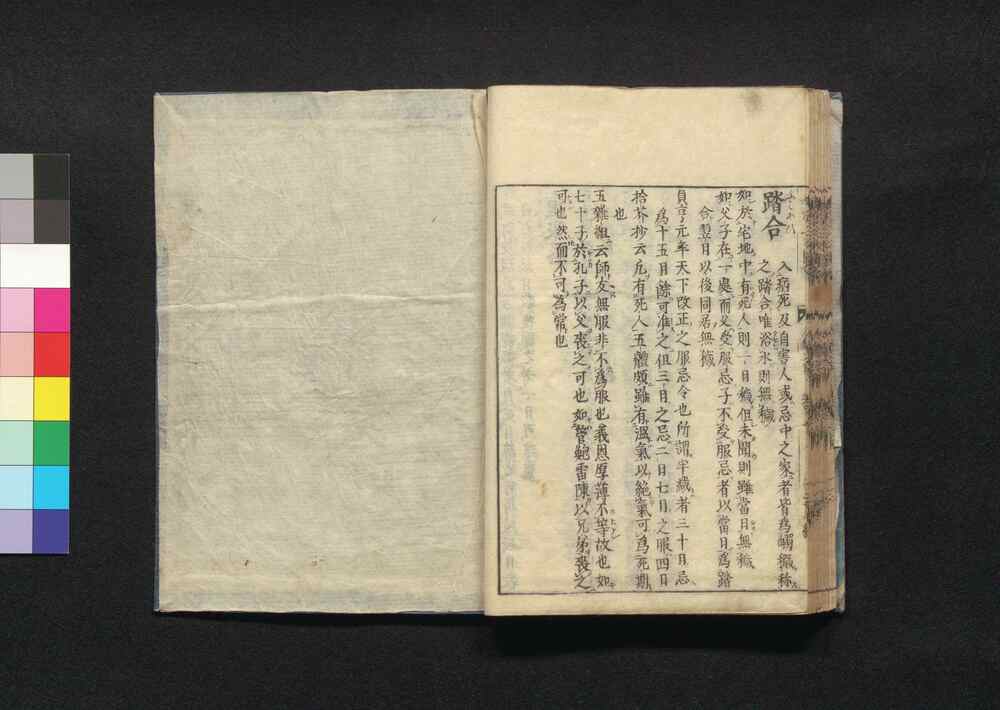 踏合
入病死及自害人或忌中之家者皆為觸穢稱
之踏合唯浴水則無穢
如於宅地中有死人則一日穢但未聞則雖當日無穢
如父子在一處而父受服忌子不受服忌者以當日為踏
合翌日以後同居無穢
貞享元年天下改正之服忌令也所謂半減者三十日忌
為十五日餘可准之但三日之忌二日七日之服四日
也
拾芥抄云凡有死人五體頗雖有温氣以絶氣可為死期
五雜俎云師友無服非不為服也義恩厚薄不等故也如
七十子於孔子以父喪之可也如管鮑雷陳以兄弟喪之
可也然而不可為常也